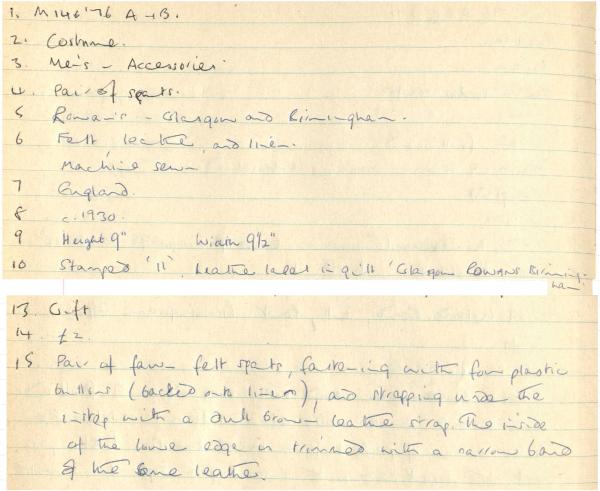 1. M146'76 A-B.
2. Costume.
3. Men's - Accessories.
4. Pair of spats.
5 Rowans - Glasgow and Birmingham.
6 Felt, leather, and linen.
Machine sewn
7 England.
8 c.1930.
9 Height 9" Width 9½"
10 Stamped '11'. Leather label in gilt 'Glasgow ROWANS Birming-
ham
13 Gift
14 £2.
15 Pair of fawn felt spats, fastening with four plastic
buttons (backed onto linen), and strapping under the
instep with a dull brown leather strap. The inside
of the lower edge is trimmed with a narrow band
of the same leather.